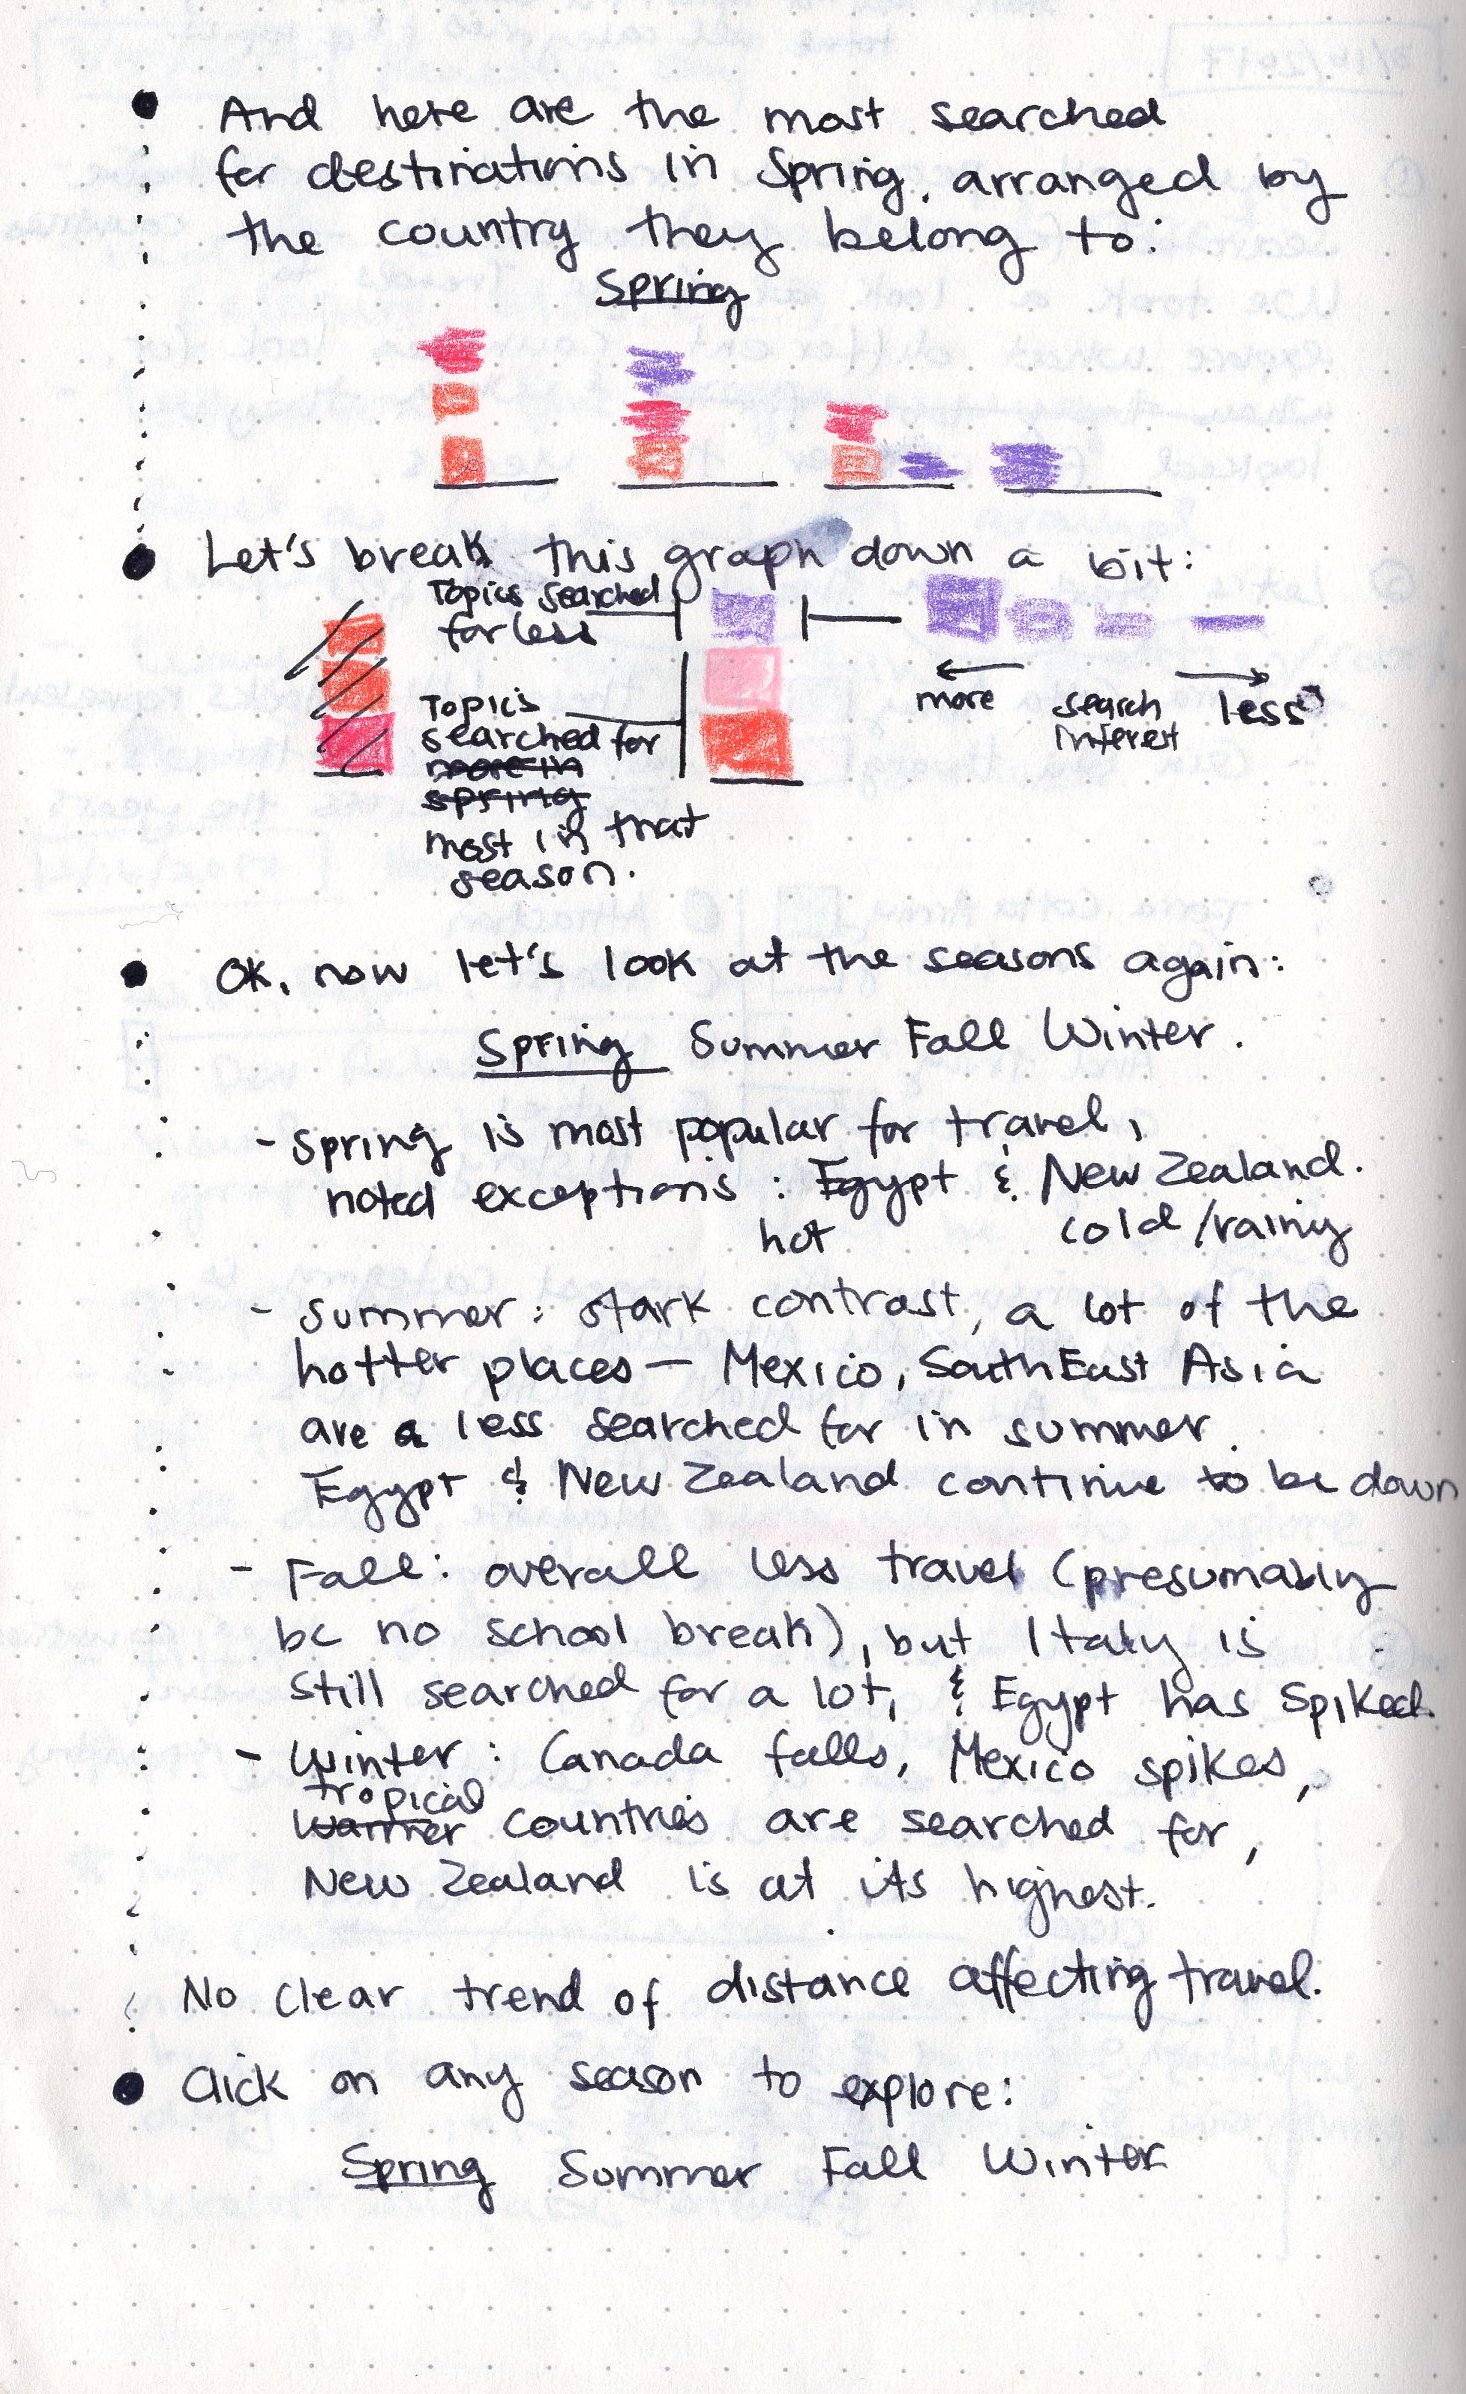 And here are the most searched
for destinations in Spring, arranged by
the country they belong to:
Spring
Let's break this graph down a bit:
Topics searched
for less
more search interest less
Topics
searched for
more in
spring
most in that
season.
OK, now let's look at the seasons again:
Spring Summer Fall Winter.
- Spring is most popular for travel,
noted exceptions: Egypt & New Zealand.
hot cold/rainy
- Summer: stark contrast, a lot of the
hotter places – Mexico, SouthEast Asia
are a less searched for in summer.
Egypt & New Zealand continue to be down
- Fall: overall less travel (presumably
bc no school break), but Italy is
still searched for a lot, & Egypt has spiked.
- Winter: Canada falls, Mexico spikes,
tropical
warmer countries are searched for,
New Zealand is at its highest.
No clear trend of distance affecting travel.
Click on any season to explore:
Spring Summer Fall Winter